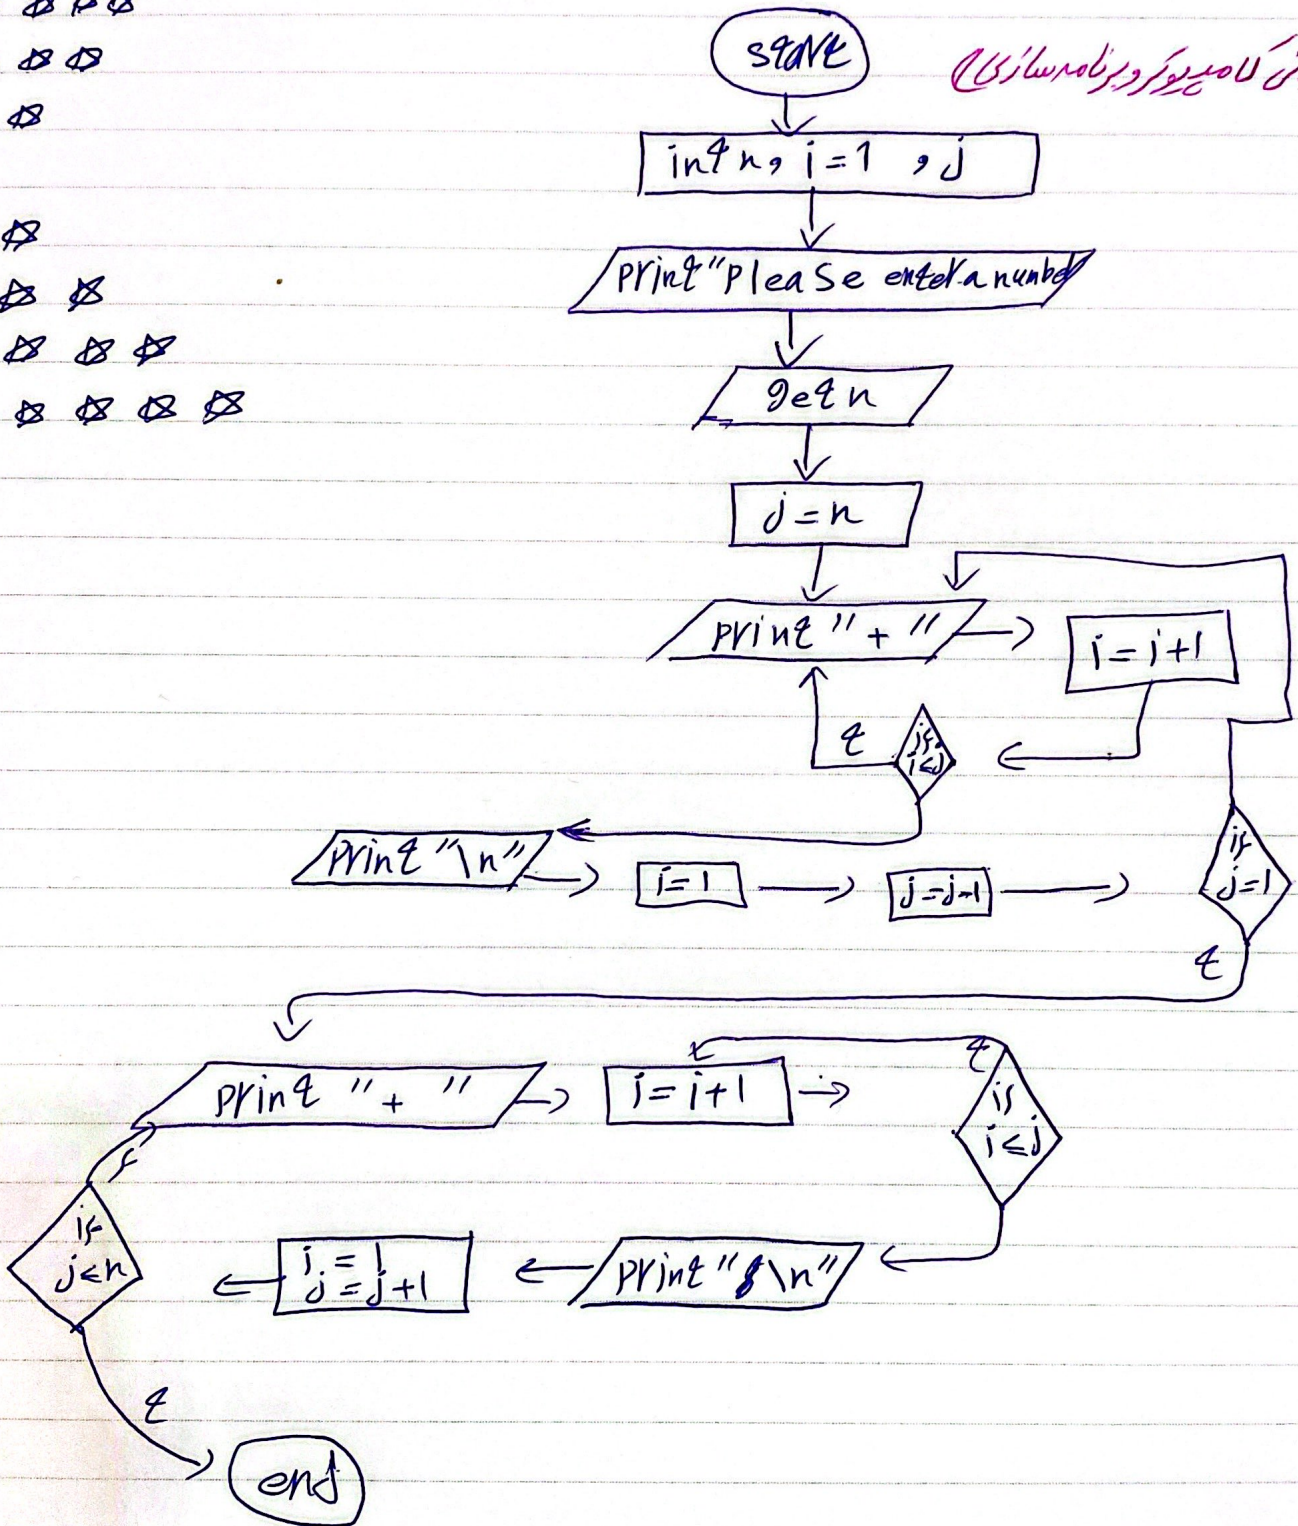 start
کامپیوتر و برنامه سازی
int n, i=1 , j
print "Please enter a number
get n
j=n
print "+ "
i=i+1
if i≤j
t
print "\n"
i=1
j=j-1
if j=1
t
print "+ "
i=i+1
t
if i≤j
print "\n"
i=1
j=j+1
if j≤n
f
t
end